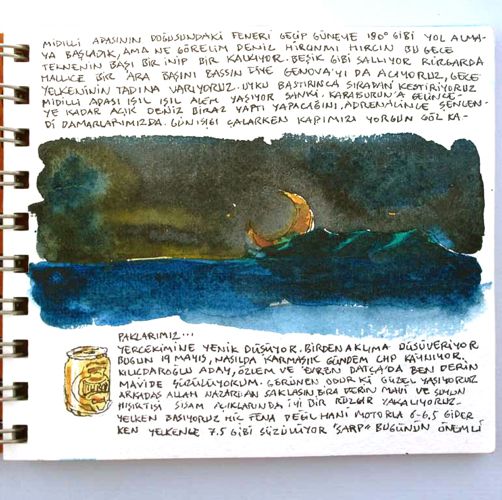 MİDİLLİ ADASININ DOĞUSUNDAKİ FENERİ GEÇİP GÜNEYE 180° GİBİ YOL ALMA-
YA BAŞLADIK, AMA NE GÖRELİM DENİZ HIRÇINMI HIRÇIN BU GECE
TEKNENİN BAŞI BİR İNİP BİR KALKIYOR. BEŞİK GİBİ SALLIYOR RÜZGARDA
MALLICE BİR ARA BAŞINI BASSIN DİYE GENOVA'YI DA AÇIYORUZ, GECE
YELKENİNİN TADINA VARIYORUZ. UYKU BASTIRINCA SIRADAN KESTİRİYORUZ
MİDİLLİ ADASI IŞIL IŞIL ALEM YAŞIYOR SANKİ. KARABURUN'A GELİNCE-
YE KADAR AÇIK DENİZ BİRAZ YAPTI YAPACAĞINI, ADRENALİNCE ŞENLEN-
Dİ DAMARLARIMIZDA. GÜN IŞIĞI ÇALARKEN KAPIMIZI YORGUN GÖZ KA-
PAKLARIMIZ...
YERÇEKİMİNE YENİK DÜŞÜYOR. BİRDEN AKLIMA DÜŞÜVERİYOR
BUGÜN 19 MAYIS, NASILDA KARMAŞIK GÜNDEM CHP KAYNIYOR.
KILIÇDAROĞLU ADAY, ÖZLEM VE EVREN DATÇA'DA BEN DERİN
MAVİDE SÜZÜLÜYORUM. GÖRÜNEN ODUR Kİ GÜZEL YAŞIYORUZ
ARKADAŞ ALLAH NAZARDAN SAKLASIN, BİRA DERİN MAVİ VE SUYUN
HIŞIRTISI SİSAM AÇIKLARINDA İYİ BİR RÜZGAR YAKALIYORUZ.
YELKEN BASIYORUZ HİÇ FENA DEĞİL HANİ MOTORLA 6-6.5 GİDER
KEN YELKENLE 7.5 GİBİ SÜZÜLÜYOR "SARP" BUGÜNÜN ÖNEMLİ